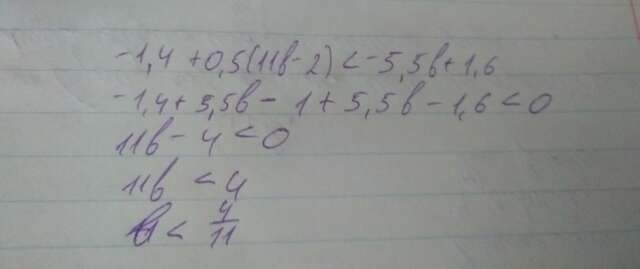 -1,4 + 0,5(11b - 2) < -5,5b + 1,6
-1,4 + 5,5b - 1 + 5,5b - 1,6 < 0
11b - 4 < 0
11b < 4
b < 4/11